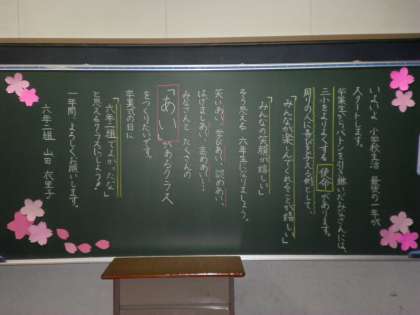 いよいよ 小学校生活 最後の一年がスタートします。
卒業生からバトンを引き継いだみなさんには、
三小をよりよくする 使命 があります。
周りの人に喜びを与える側として、
「みんなが楽しんでくれることが嬉しい」
「みんなの笑顔が嬉しい」
そう思える 六年生になりましょう。
笑いあい、学びあい、認めあい、
はげましあい、高めあい…、
みなさんと たくさんの
「あい」があるクラス
をつくりたいです。
卒業式の日に
「六年二組でよかったな」
と思えるクラスにしよう♪
一年間、よろしくお願いします。
六年二組 山田 衣里子